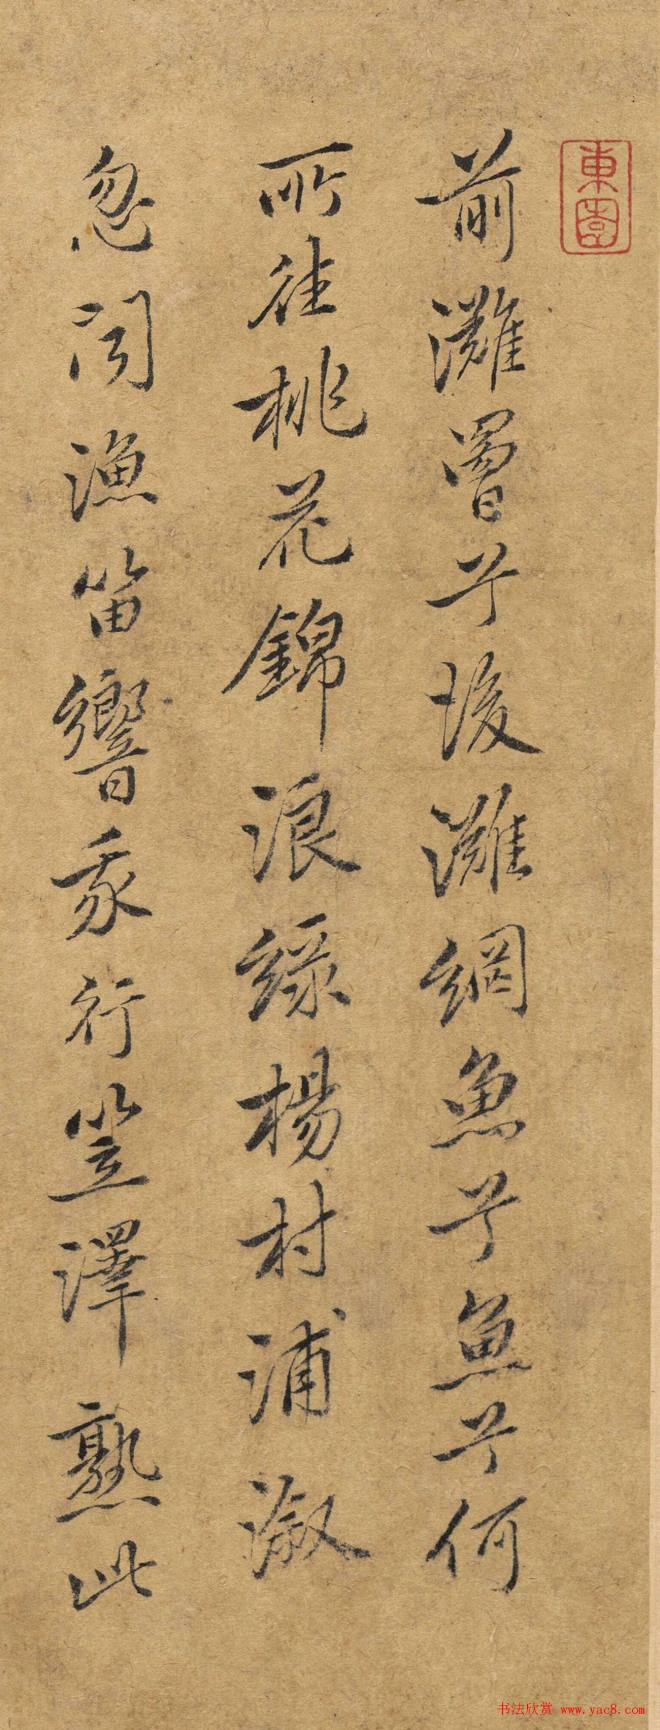 東園
前灘罾兮後灘網魚兮魚兮何
所往桃花錦浪綠楊村浦溆
忽聞漁笛響我行笠澤熟此
书法欣赏 www.yac8.com